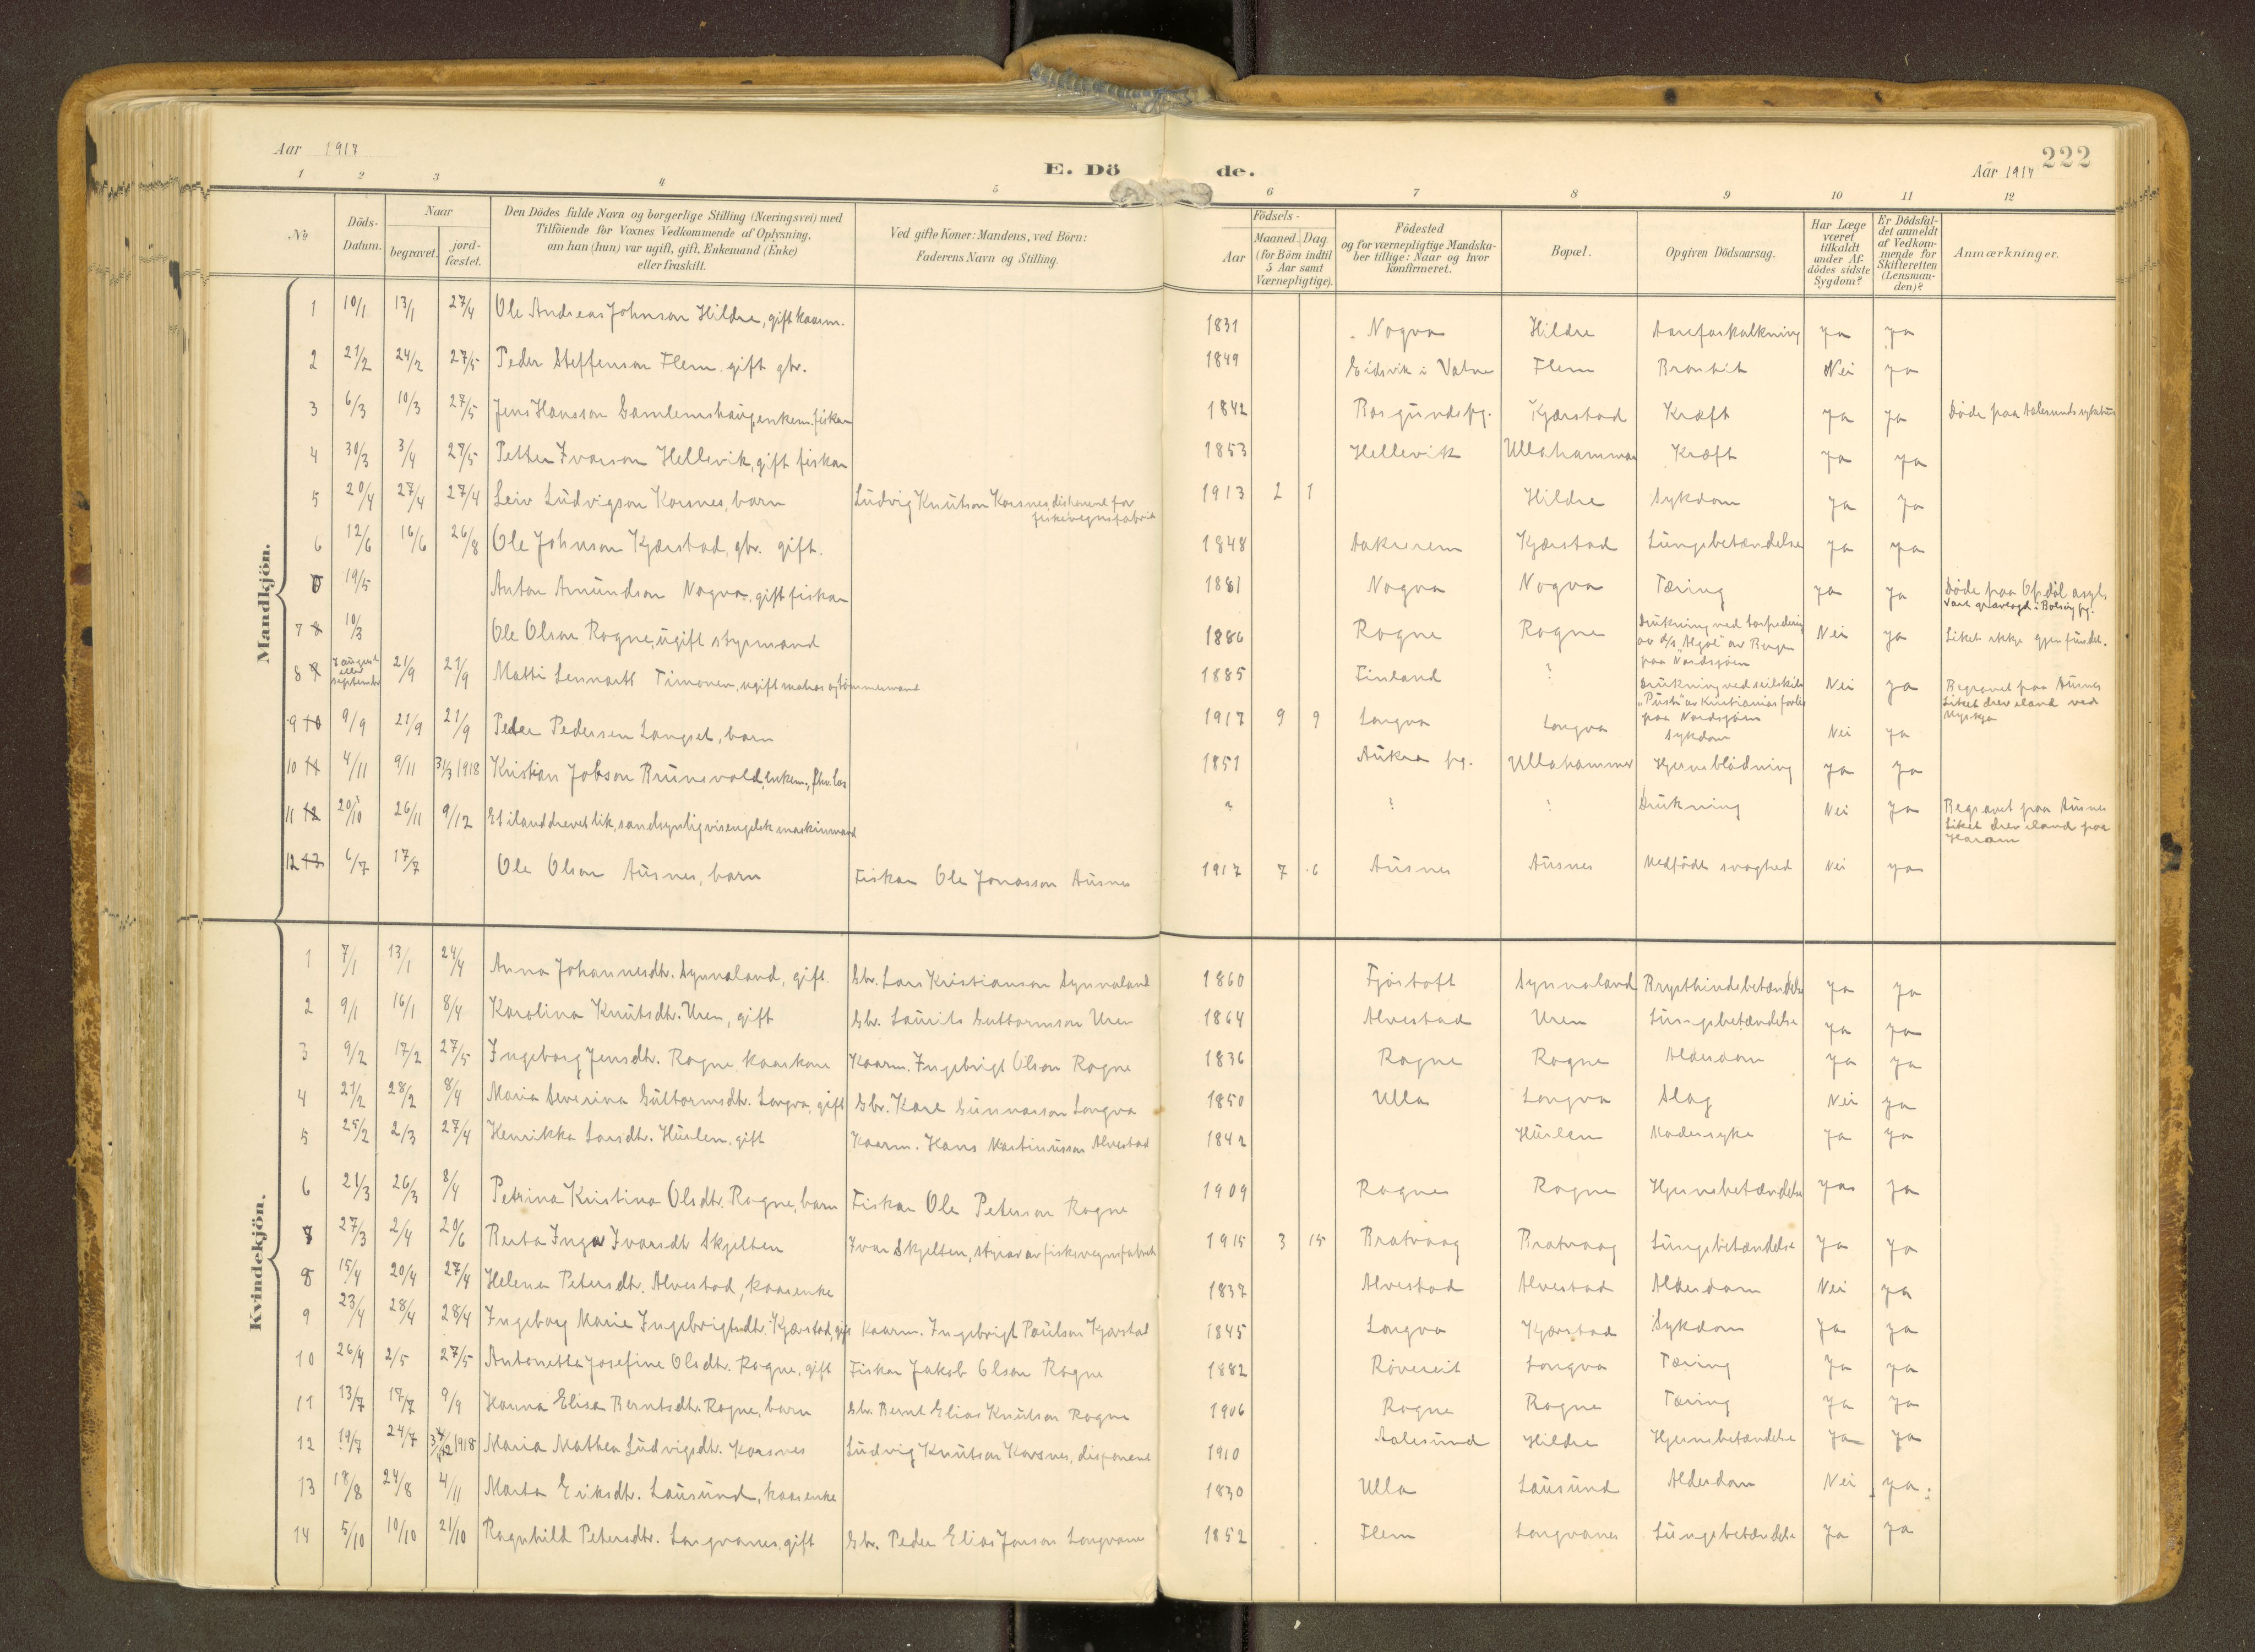 Aar 1917
E. Dö de.
Aar 1917 222
1 2 3 4 5 6 7 8 9 10 11 12
№
Döds-Datum.
Naar
begravet.
jord-fæstet.
Den Dödes fulde Navn og borgerlige Stilling (Næringsvei) med
Tilföiende for Voxnes Vedkommende af Oplysning,
om han (hun) var ugift, gift, Enkemand (Enke)
eller fraskilt.
Ved gifte Koner: Mandens, ved Börn:
Faderens Navn og Stilling.
Födsels-
Aar
Maaned. Dag.
(for Börn indtil
5 Aar samt
Værnepligtige).
Födested
og for værnepligtige Mandska-
ber tillige: Naar og hvor
konfirmeret.
Bopæl.
Opgiven Dödsaarsag.
Har Læge
været
tilkaldt
under Af-
dödes sidste
Sygdom?
Er Dödsfal-
det anmeldt
af Vedkom-
mende for
Skifteretten
(Lensman-
den)?
Anmærkninger.
Mandkjön.
1 10/1 13/1 27/4 Ole Andreas Johnson Hildre, gift kaarm. 1831 Nogva Hildre Aareforkalkning ja ja
2 21/2 24/2 27/5 Peder Steffenson Flem, gift gbr. 1849 Eidsvik i Vatne Flem Bronkit Nei ja
3 6/3 10/3 27/5 Jens Hansson Gamlemshaug, enkem. fiskar 1842 Borgundspg. Kjærstad Kræft ja ja Döde paa Aalesunds sykehus
4 30/3 3/4 27/5 Petter Ivarson Hellevik, gift fiskar 1853 Hellevik Ullahammar Kræft ja ja
5 20/4 27/4 27/4 Leiv Ludvigson Korsnes, barn Ludvig Knutson Korsnes, disponent for
fiskevegnfabrik 1913 2 1 Hildre Sykdom ja ja
6 12/6 16/6 26/8 Ole Johnson Kjærstad, gbr. gift. 1848 Aakrerem Kjærstad Lungebetændelse ja ja
19/5 Anton Amundson Nogva, gift fiskar 1881 Nogva Nogva Tæring ja ja Döde paa Opdöl asyl.
Vart gravlagd i Bolsöy pg.
7 8 10/3 Ole Olson Rogne, ugift styrmand 1886 Rogne Rogne Drukning ved torpedering
av d/s "Algöl" av Bergen
paa Nordsjöen Nei ja Liket ikkje gjenfundet.
8 9 7 august
eller
september 21/9 21/9 Matti Lennartt Timonen, ugift matros og tömmermand 1885 Finland ? Drukning ved seilskib
"Pusta" av Kristianias forlis
paa Nordsjöen Nei ja Begravet paa Ausnes
Liket drev iland ved
Myskja
9 10 9/9 21/9 21/9 Peder Pedersen Langset, barn 1917 9 9 Longva Longva Sykdom Nei ja
10 11 4/11 9/11 31/3 1918 Kristian Jobson Brunsvold, enkem., fhv. los 1851 Aukra pg. Ullahammer Hjerneblödning ja ja
11 12 20/10 26/11 9/12 Et ilanddrevet lik, sandsynligvis engelsk maskinmand ? ? ? Drukning Nei ja Begravet paa Ausnes
Liket drev iland paa
Haram
12 13 6/7 17/7 Ole Olson Ausnes, barn Fiskar Ole Jonasson Ausnes 1917 7 6 Ausnes Ausnes Medfödt svaghed Nei ja
Kvindekjön.
1 7/1 13/1 24/4 Anna Johannesdtr. Synnaland, gift. Gbr. Lars Kristianson Synnaland 1860 Fjörtoft Synnaland Brysthindebetændelse ja ja
2 9/1 16/1 8/4 Karolina Knutsdtr. Uren, gift Gbr. Laurits Guttormson Uren 1864 Alvestad Uren Lungebetændelse ja ja
3 9/2 17/2 27/5 Ingeborg Jensdtr. Rogne, kaarkone Kaarm. Ingebrigt Olson Rogne 1836 Rogne Rogne Alderdom ja ja
4 21/2 28/2 8/4 Maria Severina Guttormsdtr. Longva, gift Gbr. Karl Gunnarson Longva 1850 Ulla Longva Slag Nei ja
5 25/2 2/3 27/4 Henrikka Larsdtr. Huslen, gift Kaarm. Hans Martinusson Alvestad 1842 Huslen Modersyke ja ja
6 21/3 26/3 8/4 Petrina Kristina Olsdtr. Rogne, barn Fiskar Ole Peterson Rogne 1909 Rogne Rogne Hjernebetændelse ja ja
27/3 2/4 20/6 Berta Inga Ivarsdtr Skjelten Ivar Skjelten, styrar av fiskevegnfabrik 1915 3 15 Bratvaag Bratvaag Lungebetændelse ja ja
8 15/4 20/4 27/4 Helena Petersdtr. Alvestad, kaarenke 1837 Alvestad Alvestad Alderdom Nei ja
9 23/4 28/4 28/4 Ingeborg Marie Ingebrigtsdtr. Kjærstad, gift Kaarm. Ingebrigt Paulson Kjærstad 1845 Longva Kjærstad Sykdom ja ja
10 26/4 2/5 27/5 Antonetta Josefine Olsdtr. Rogne, gift Fiskar Jakob Olson Rogne 1882 Rövereit Longva Tæring ja ja
11 13/7 17/7 9/9 Hanna Elisa Berntsdtr. Rogne, barn Gbr. Bernt Elias Knutson Rogne 1906 Rogne Rogne Tæring ja ja
12 19/7 24/7 1918 Maria Mathea Ludvigsdtr. Korsnes Ludvig Knutson Korsnes, disponent 1910 Aalesund Hildre Hjernebetændelse ja ja
13 18/8 24/8 4/11 Marta Eriksdtr. Lausund, kaarenke 1830 Ulla Lausund Alderdom Nei ja
14 5/10 10/10 21/10 Ragnhild Petersdtr. Longvanes, gift Gbr. Peder Elias Jonson Longvanes 1852 Flem Longvanes Lungebetændelse ja ja